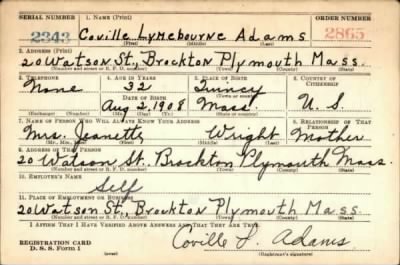 SERIAL NUMBER 1. NAME (Print) ORDER NUMBER
2343 Coville Lymebourne Adams 2865
(First) (Middle) (Last)
2. ADDRESS (Print)
20 Watson St., Brockton Plymouth Mass.
(Number and street or R. F. D. number) (Town) (County) (State)
3. TELEPHONE 4. AGE IN YEARS 5. PLACE OF BIRTH 6. COUNTRY OF CITIZENSHIP
None 32 Quincy
DATE OF BIRTH (Town or county)
Aug 2, 1908 Mass. U. S.
(Exchange) (Number) (Mo.) (Day) (Yr.) (State or country)
7. NAME OF PERSON WHO WILL ALWAYS KNOW YOUR ADDRESS 8. RELATIONSHIP OF THAT PERSON
Mrs. Jeanette Wright Mother
(Mr., Mrs., Miss) (First) (Middle) (Last)
9. ADDRESS OF THAT PERSON
20 Watson St. Brockton Plymouth Mass
(Number and street or R. F. D. number) (Town) (County) (State)
10. EMPLOYER'S NAME
Self
11. PLACE OF EMPLOYMENT OR BUSINESS
20 Watson St., Brockton Plymouth Mass.
(Number and street or R. F. D. number) (Town) (County) (State)
I AFFIRM THAT I HAVE VERIFIED ABOVE ANSWERS AND THAT THEY ARE TRUE.
REGISTRATION CARD
D. S. S. Form 1 (over) Coville L. Adams
(Registrant's signature)